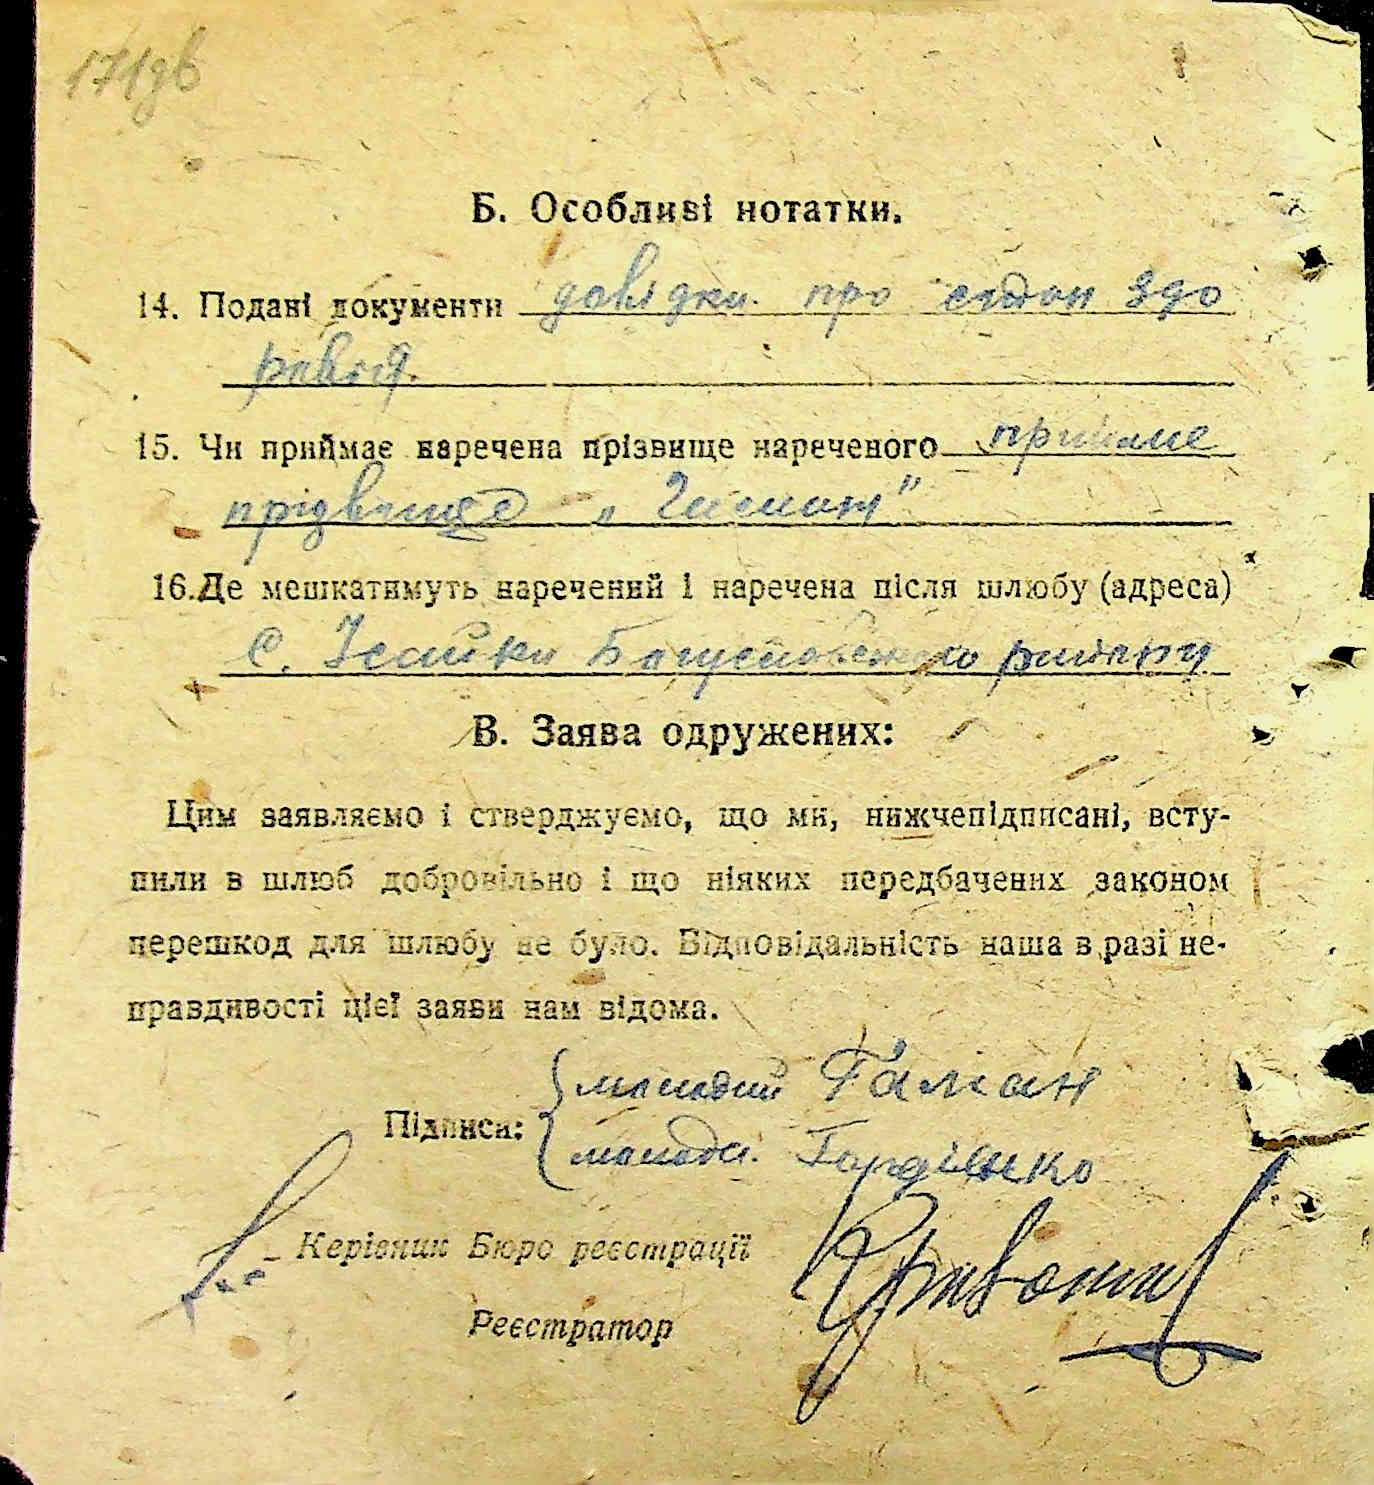 171дв
Б. Особливі нотатки.
14. Подані документи довідки про стан здо
ровля.
15. Чи приймає наречена прізвище нареченого приймає
прізвище „Гаман"
16. Де мешкатимуть наречений і наречена після шлюбу (адреса)
С. Ісайки Богуславського району
В. Заява одружених:
Цим заявляємо і стверджуємо, що ми, нижчепідписані, всту-
пили в шлюб добровільно і що ніяких передбачених законом
перешкод для шлюбу не було. Відповідальність наша в разі не-
правдивості цієї заяви нам відома.
молодий Гаман
Підписи:
молода. Гордієнко
Керівник Бюро реєстрації
Реєстратор